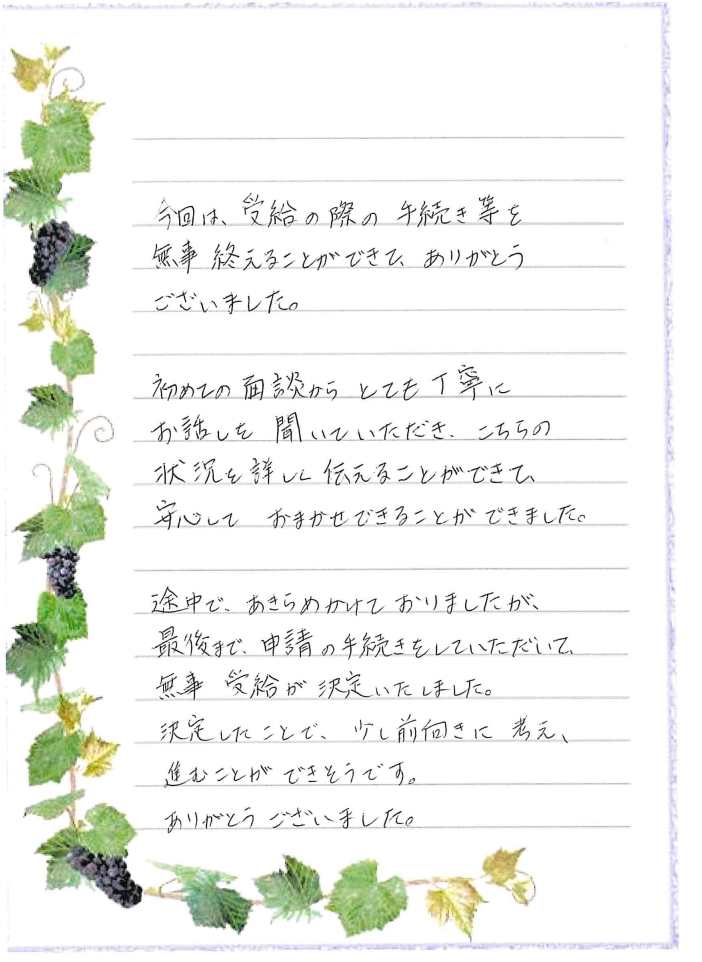 今回は、受給の際の手続き等を
無事 終えることができて、ありがとう
ございました。
初めての面談から とても丁寧に
お話しを 聞いていただき、こちらの
状況を詳しく伝えることができて、
安心して おまかせできることができました。
途中で、あきらめかけておりましたが、
最後まで、申請の手続きをしていただいて、
無事 受給が決定いたしました。
決定したことで、少し前向きに 考え、
進むことが できそうです。
ありがとうございました。